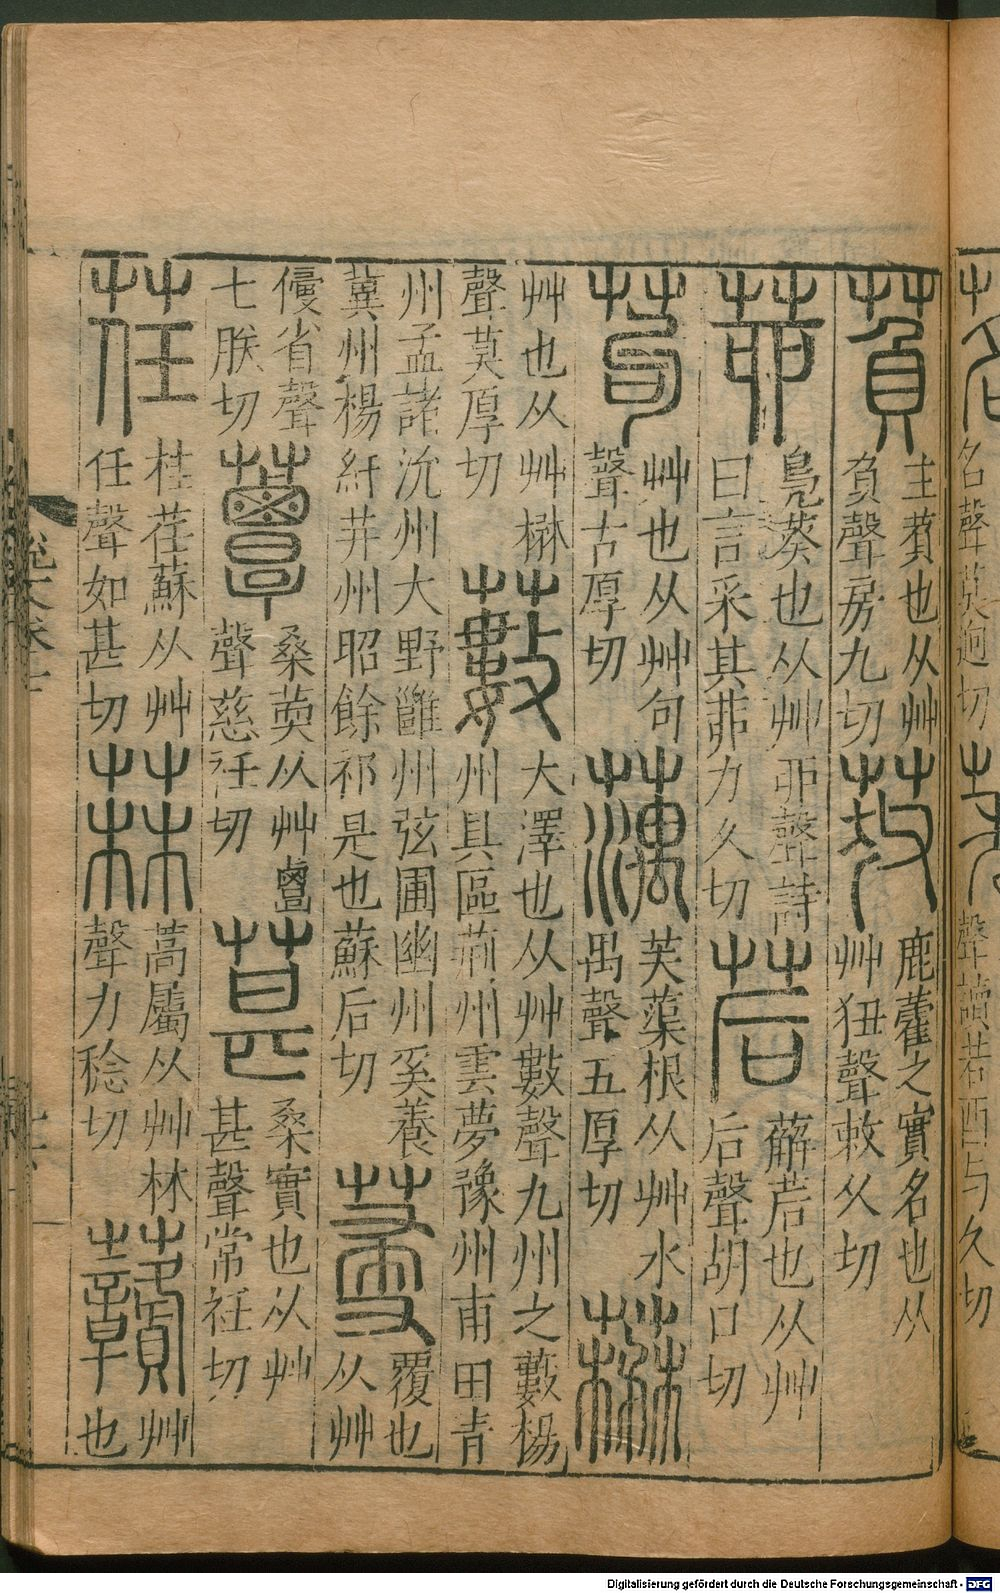 名聲莫迥切
聲讀若酉与久切
萯 主萯也从艸
負聲房九切
莥 鹿藿之實名也从
艸狃聲敕久切
茆 鳧葵也从艸丣聲詩
曰言采其茆力久切
茩 薢茩也从艸
后聲胡口切
苟 艸也从艸句
聲古厚切
蕅 芙蕖根从艸水
禺聲五厚切
茂
艸也从艸楙
聲莫厚切
藪 大澤也从艸數聲九州之藪楊
州具區荊州雲夢豫州甫田青
州孟諸沇州大野雝州弦圃幽州奚養
冀州楊紆幷州昭餘祁是也蘇后切
葠 覆也
从艸
僾省聲
七朕切
蕈 桑耎从艸𪉷
聲慈衽切
葚 桑實也从艸
甚聲常衽切
荏 桂荏蘇从艸
任聲如甚切
菻 蒿屬从艸林
聲力稔切
贛 艸
也
說文卷
Digitalisierung gefördert durch die Deutsche Forschungsgemeinschaft - DFG